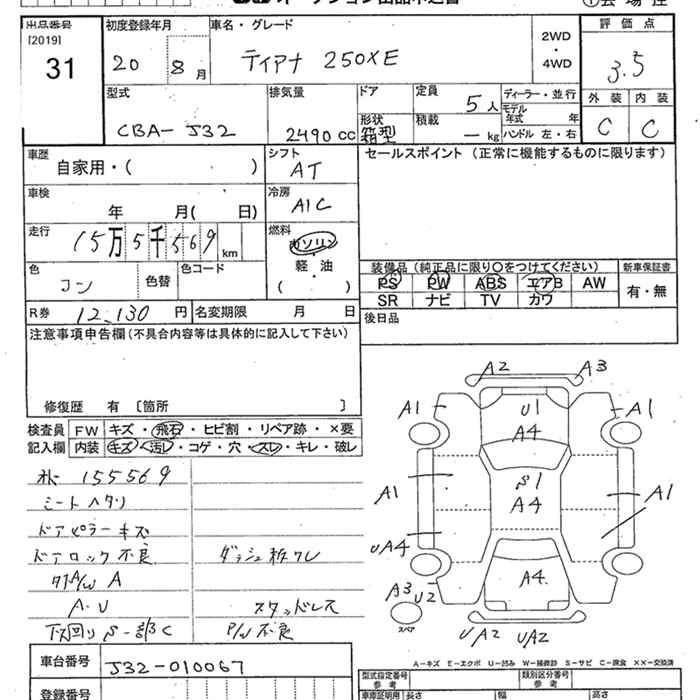 出品番号
[2019]
31
初度登録年月
20 8月
車名・グレード
ティアナ 250XE
2WD
・
4WD
評価点
3.5
外装 内装
C C
型式
CBA-J32
排気量
2490 cc
ドア
形状
箱型
定員
5人
積載
— kg
ディーラー・並行
モデル年式 年
ハンドル 左・右
車歴
自家用・( )
シフト
AT
セールスポイント(正常に機能するものに限ります)
車検
年 月( 日)
冷房
A/C
走行
15万5千569 km
燃料
ガソリン
・
軽・油
・
( )
色
コン
色替
色コード
装備品(純正品に限り○をつけてください)
PS PW ABS エアB AW
SR ナビ TV カワ
新車保証書
有・無
R券 12,130 円
名変期限 月 日
後日品
注意事項申告欄(不具合内容等は具体的に記入して下さい)
修復歴 有 〔箇所 〕
検査員記入欄
FW キズ・飛石・ヒビ割・リペア跡・×要
内装 キズ・汚レ・コゲ・穴・スレ・キレ・破レ
155569
シートヘタリ
ドアピラーキズ
ドアロック不良
ダッシュ板ワレ
A/W A
A・U
スタッドレス
下回りS 一部C
P/W不良
A2 A3
A1 U1 A1
A4
S1
A1 A4 A1
UA4
A4
A3 U2
スペア
UA2 UA2
A-キズ E-エクボ U-凹み W-補修跡 S-サビ C-腐食 XX-交換済
車台番号
J32-010067
登録番号
型式指定番号
参考
類別区分番号
参考
車庫証明用 長さ 幅 高さ